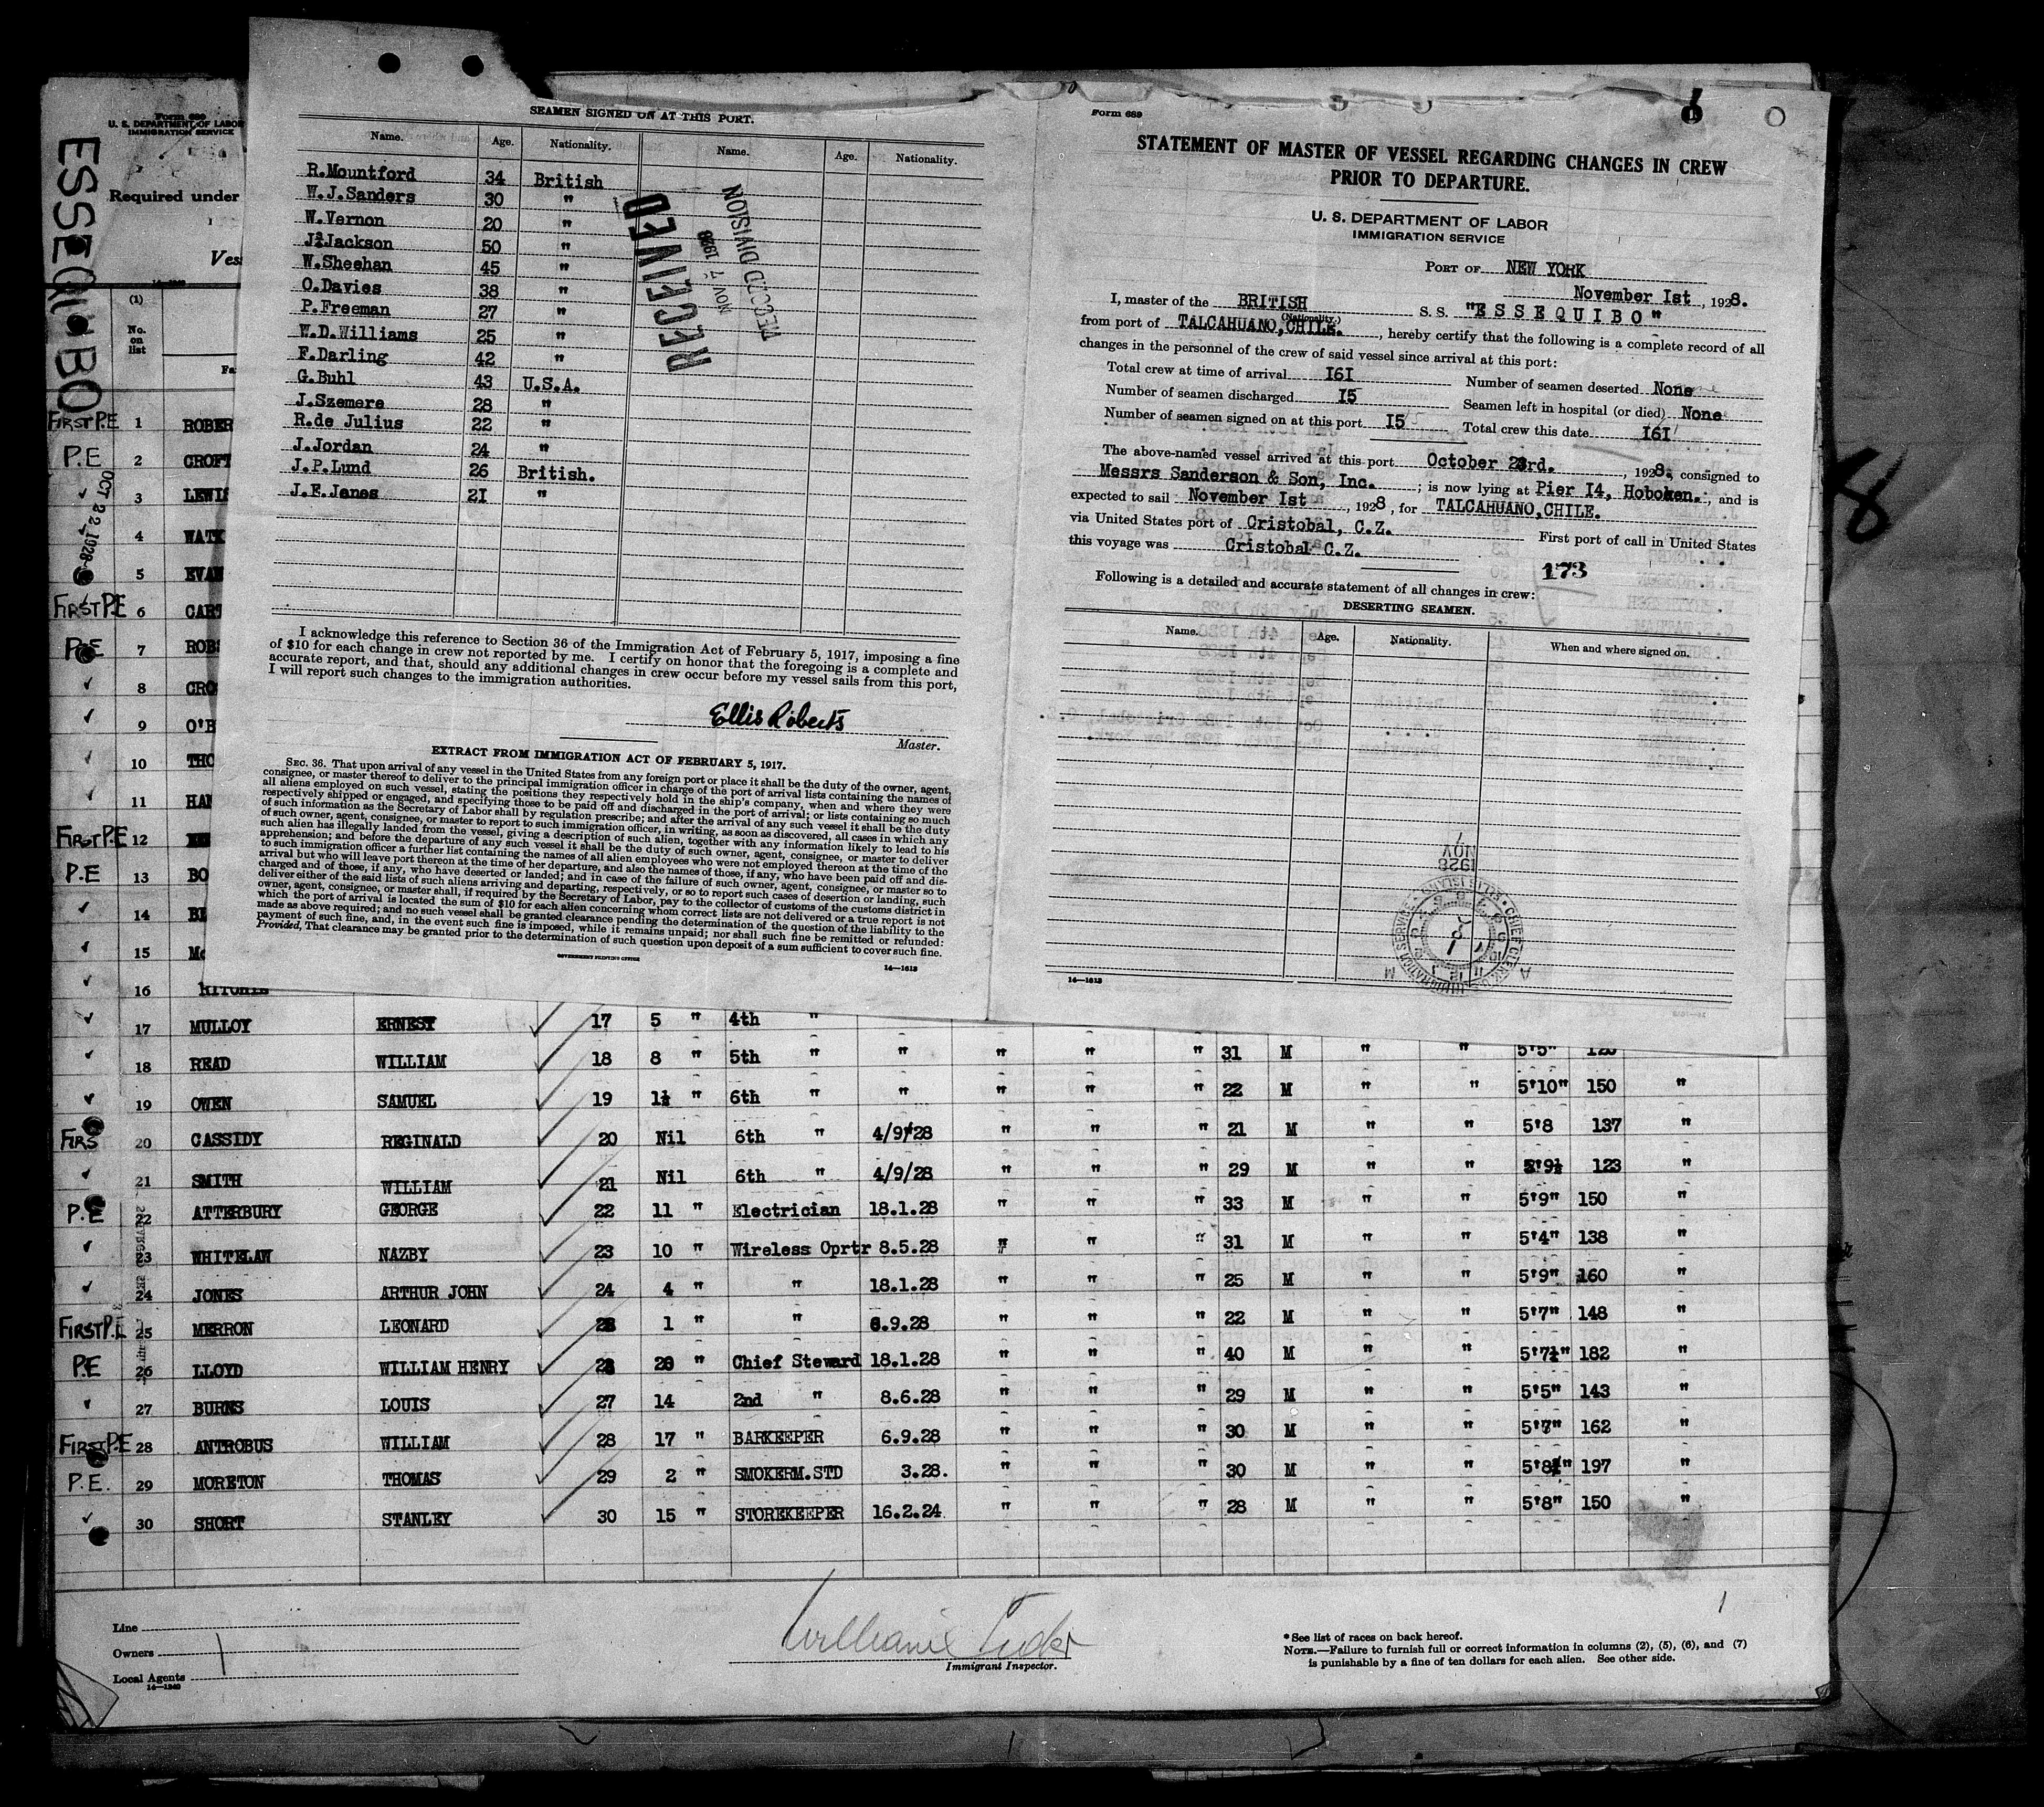 SEAMEN SIGNED ON AT THIS PORT.
Name. Age. Nationality. Name. Age. Nationality.
R.Mountford 34 British
W.J.Sanders 30 "
W.Vernon 20 "
J. Jackson 50 "
W.Sheehan 45 "
O.Davies 38 "
P.Freeman 27 "
W.D.Williams 25 "
F.Darling 42 "
G.Buhl 43 U.S.A.
J.Szemere 28 "
R.de Julius 22 "
J.Jordan 24 "
J.P.Lund 26 British.
J.E.Janes 2I "
RECEIVED
NOV 7 1928
RECORD DIVISION
I acknowledge this reference to Section 36 of the Immigration Act of February 5, 1917, imposing a fine
of $10 for each change in crew not reported by me. I certify on honor that the foregoing is a complete and
accurate report, and that, should any additional changes in crew occur before my vessel sails from this port,
I will report such changes to the immigration authorities.
Ellis Roberts
Master.
EXTRACT FROM IMMIGRATION ACT OF FEBRUARY 5, 1917.
SEC. 36. That upon arrival of any vessel in the United States from any foreign port or place it shall be the duty of the owner, agent,
consignee, or master thereof to deliver to the principal immigration officer in charge of the port of arrival lists containing the names of
all aliens employed on such vessel, stating the positions they respectively hold in the ship's company, when and where they were
respectively shipped or engaged, and specifying those to be paid off and discharged in the port of arrival; or lists containing so much
of such information as the Secretary of Labor shall by regulation prescribe; and after the arrival of any such vessel it shall be the duty
of such owner, agent, consignee, or master to report to such immigration officer, in writing, as soon as discovered, all cases in which any
such alien has illegally landed from the vessel, giving a description of such alien, together with any information likely to lead to his
apprehension; and before the departure of any such vessel it shall be the duty of such owner, agent, consignee, or master to deliver
to such immigration officer a further list containing the names of all alien employees who were not employed thereon at the time of the
arrival but who will leave port thereon at the time of her departure, and also the names of those, if any, who have been paid off and dis-
charged and of those, if any, who have deserted or landed; and in case of the failure of such owner, agent, consignee, or master so to
deliver either of the said lists of such aliens arriving and departing, respectively, or so to report such cases of desertion or landing, such
owner, agent, consignee, or master shall, if required by the Secretary of Labor, pay to the collector of customs of the customs district in
which the port of arrival is located the sum of $10 for each alien concerning whom correct lists are not delivered or a true report is not
made as above required; and no such vessel shall be granted clearance pending the determination of the question of the liability to the
payment of such fine, and, in the event such fine is imposed, while it remains unpaid; nor shall such fine be remitted or refunded:
Provided, That clearance may be granted prior to the determination of such question upon deposit of a sum sufficient to cover such fine.
GOVERNMENT PRINTING OFFICE
14—1613
Form 689
STATEMENT OF MASTER OF VESSEL REGARDING CHANGES IN CREW
PRIOR TO DEPARTURE.
U. S. DEPARTMENT OF LABOR
IMMIGRATION SERVICE
PORT OF NEW YORK
November Ist, 1928.
I, master of the BRITISH S. S. "ESSEQUIBO"
(Nationality.)
from port of TALCAHUANO,CHILE., hereby certify that the following is a complete record of all
changes in the personnel of the crew of said vessel since arrival at this port:
Total crew at time of arrival I6I Number of seamen deserted None
Number of seamen discharged I5 Seamen left in hospital (or died) None
Number of seamen signed on at this port I5 Total crew this date I6I
The above-named vessel arrived at this port October 23rd. , 1928, consigned to
Messrs Sanderson & Son, Inc. ; is now lying at Pier I4, Hoboken. , and is
expected to sail November Ist , 1928, for TALCAHUANO,CHILE.
via United States port of Cristobal, C.Z. First port of call in United States
this voyage was Cristobal C.Z.
173
Following is a detailed and accurate statement of all changes in crew:
DESERTING SEAMEN.
Name. Age. Nationality. When and where signed on.
NOV 1928
14—1613
ESSEQUIBO
Form 680
U. S. DEPARTMENT OF LABOR
IMMIGRATION SERVICE
Required under
Ves
(1)
No. on list
Fa
OCT 22 1928
FIRST P.E 1 ROBER
P.E 2 CROFT
3 LEWIS
4 WATK
5 EVAN
FIRST P.E 6 CART
P.E 7 ROB
8 CRO
9 O'B
10 THO
11 HAR
FIRST P.E 12
P.E 13 BO
14 BL
15 Mc
16 RITCHIE
17 MULLOY ERNEST 17 5 " 4th "
18 READ WILLIAM 18 8 " 5th " " " " " 31 M " " 5'5"
19 OWEN SAMUEL 19 1½ " 6th " " " " " 22 M " " 5'10" 150 "
FIRS 20 CASSIDY REGINALD 20 Nil 6th " 4/9/28 " " " 21 M " " 5'8 137 "
21 SMITH WILLIAM 21 Nil 6th " 4/9/28 " " " 29 M " " 5'9½ 123 "
P.E 22 ATTERBURY GEORGE 22 11 " Electrician 18.1.28 " " " 33 M " " 5'9" 150 "
23 WHITELAW NAZBY 23 10 " Wireless Oprtr 8.5.28 " " " 31 M " " 5'4" 138 "
24 JONES ARTHUR JOHN 24 4 " " 18.1.28 " " " 25 M " " 5'9" 160 "
FIRST P.E 25 MERRON LEONARD 1 " " 6.9.28 " " " 22 M " " 5'7" 148 "
P.E 26 LLOYD WILLIAM HENRY 20 " Chief Steward 18.1.28 " " " 40 M " " 5'7½" 182 "
27 BURNS LOUIS 27 14 2nd " 8.6.28 " " " 29 M " " 5'5" 143 "
FIRST P.E 28 ANTROBUS WILLIAM 28 17 " BARKEEPER 6.9.28 " " " 30 M " " 5'7" 162 "
P.E. 29 MORETON THOMAS 29 2 " SMOKERM.STD 3.28. " " " 30 M " " 5'8 " 197 "
30 SHORT STANLEY 30 15 " STOREKEEPER 16.2.24 " " " 28 M " " 5'8" 150 "
Line
Owners
Local Agents
14—1240
William Tudor
Immigrant Inspector.
*See list of races on back hereof.
NOTE.—Failure to furnish full or correct information in columns (2), (5), (6), and (7)
is punishable by a fine of ten dollars for each alien. See other side.